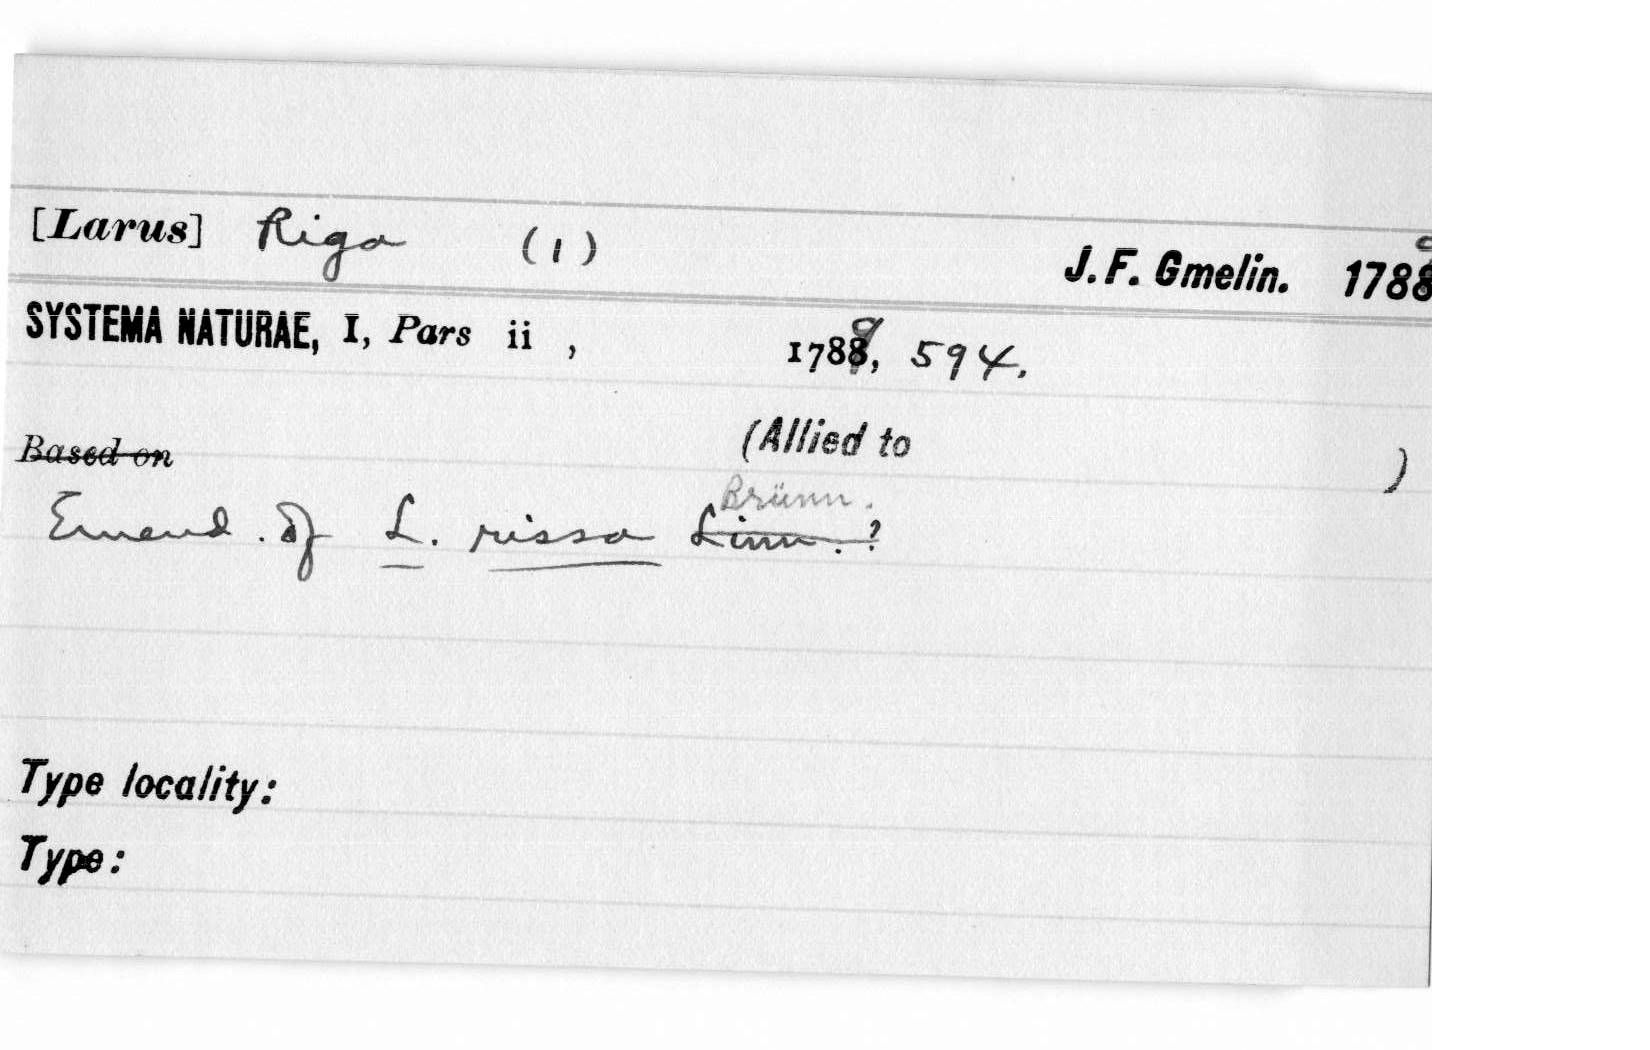 [Larus] Riga (1)
J. F. Gmelin. 1789
SYSTEMA NATURAE, I, Pars ii , 1789, 594.
Based on (Allied to )
Brünn.
Emend. of L. rissa Linn. ?
Type locality:
Type: